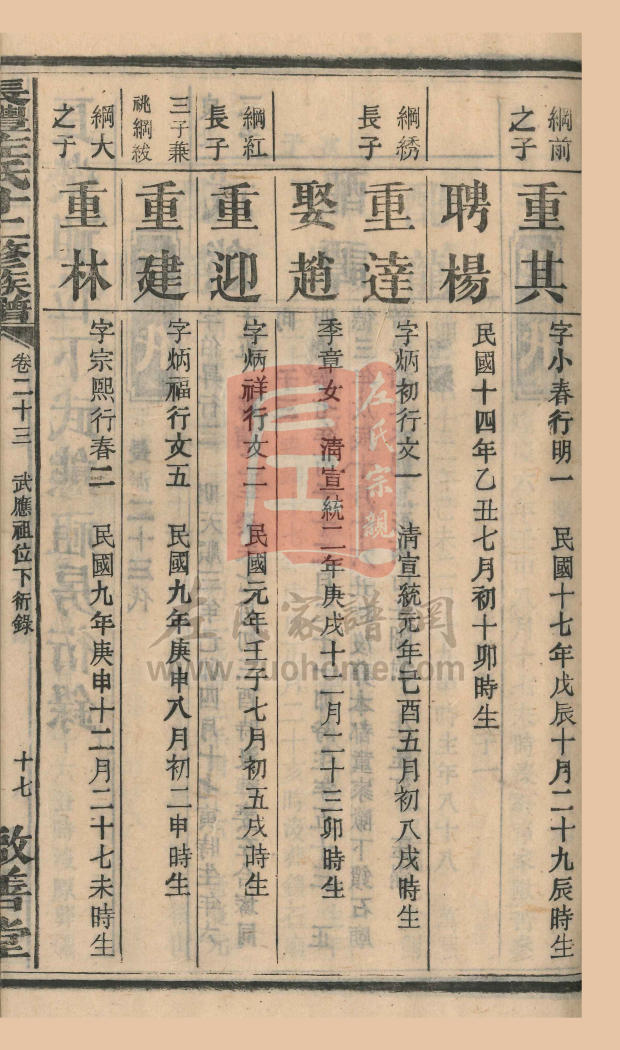 綱前
之子
重其
字小春行明一　民國十七年戊辰十月二十九辰時生
聘楊
民國十四年乙丑七月初十卯時生
綱綉
長子
重達
字炳初行文一　清宣統元年己酉五月初八戌時生
娶趙
季章女　清宣統二年庚戌十二月二十三卯時生
綱紅
長子
重迎
字炳祥行文二　民國元年壬子七月初五戌時生
三子兼
祧綱紱
重建
字炳福行文五　民國九年庚申八月初二申時生
綱大
之子
重林
字宗熙行春二　民國九年庚申十二月二十七未時生
長澧左氏十二修族譜
卷二十三　武應祖位下衍錄
十七
敦善堂
左氏宗親
左氏家譜網
www.zuohome.com